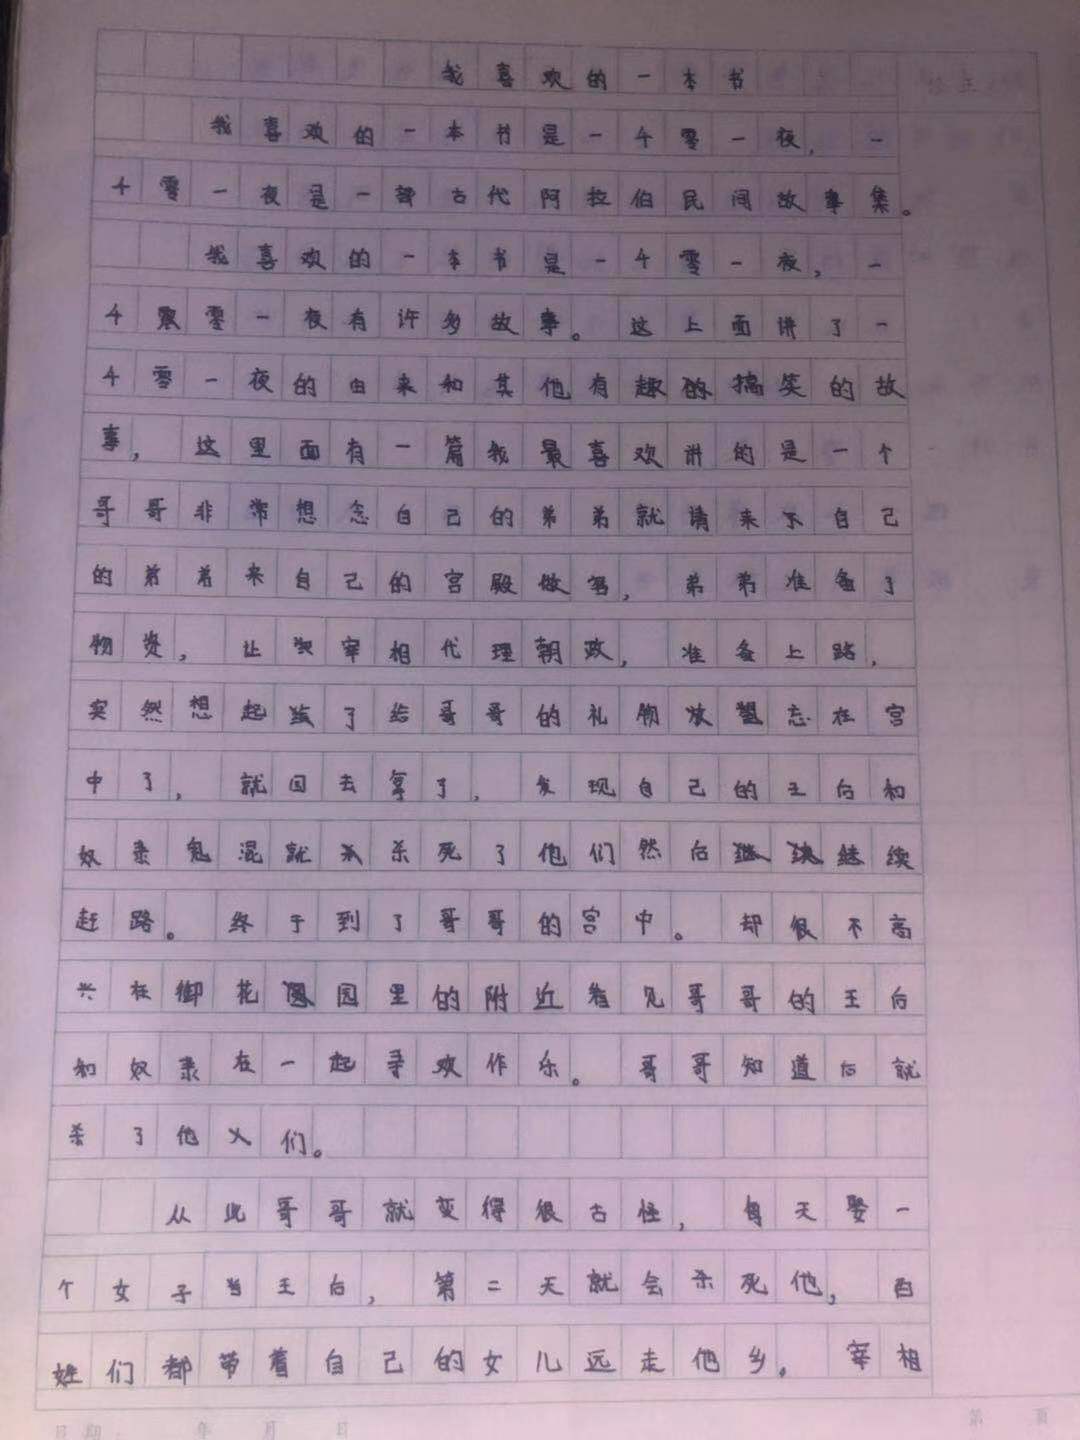 我喜欢的一本书
我喜欢的一本书是一千零一夜，一
千零一夜是一部古代阿拉伯民间故事集。
我喜欢的一本书是一千零一夜，一
千零一夜有许多故事。这上面讲了一
千零一夜的由来和其他有趣的搞笑的故
事，这里面有一篇我最喜欢讲的是一个
哥哥非常想念自己的弟弟就请来自己
的弟弟来自己的宫殿做客，弟弟准备了
物资，让宰相代理朝政，准备上路，
突然想起给了给哥哥的礼物放忘在宫
中了，就回去拿了，发现自己的王后和
奴隶鬼混就杀死了他们然后继续
赶路。终于到了哥哥的宫中。却很不高
兴在御花园里的附近看见哥哥的王后
和奴隶在一起寻欢作乐。哥哥知道后就
杀了他们。
从此哥哥就变得很古怪，每天娶一
个女子当王后，第二天就会杀死他，百
姓们都带着自己的女儿远走他乡。宰相
日期： 年 月 日
第 页